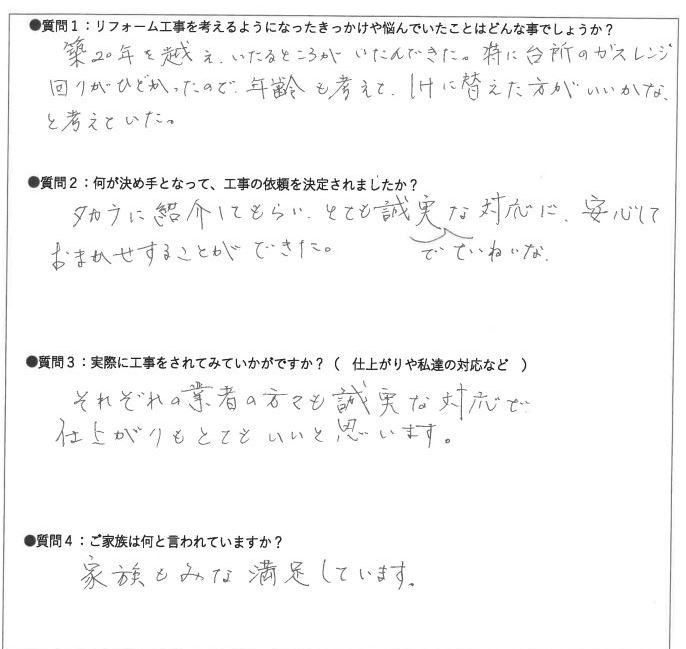 ●質問1：リフォーム工事を考えるようになったきっかけや悩んでいたことはどんな事でしょうか？
築20年を越え、いたるところがいたんできた。特に台所のガスレンジ
回りがひどかったので、年齢も考えて、IHに替えた方がいいかな、
と考えていた。
●質問2：何が決め手となって、工事の依頼を決定されましたか？
タカラに紹介してもらい、とても誠実な対応に、安心して
でていねいな
おまかせすることができた。
●質問3：実際に工事をされてみていかがですか？（　仕上がりや私達の対応など　）
それぞれの業者の方々も誠実な対応で
仕上がりもとてもいいと思います。
●質問4：ご家族は何と言われていますか？
家族もみな満足しています。